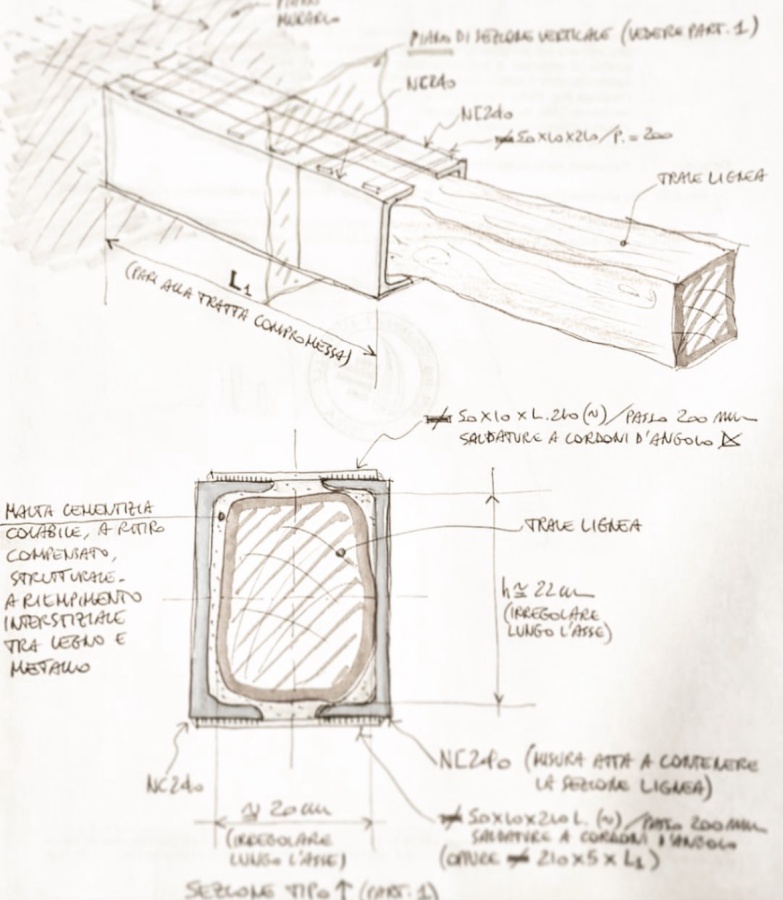 PIANO
MURARIO
PIANO DI SEZIONE VERTICALE (VEDERE PART. 1)
NC240
NC240
50x10x210/P.=200
TRAVE LIGNEA
L1
(PARI ALLA TRATTA COMPROMESSA)
50x10xL.210(~)/PASSO 200 mm
SALDATURE A CORDONI D'ANGOLO
MALTA CEMENTIZIA
COLABILE, A RITIRO
COMPENSATO,
STRUTTURALE.
A RIEMPIMENTO
INTERSTIZIALE
TRA LEGNO E
METALLO
TRAVE LIGNEA
h≃22cm
(IRREGOLARE
LUNGO L'ASSE)
NC240
NC240 (MISURA ATTA A CONTENERE
LA SEZIONE LIGNEA)
≈20cm
(IRREGOLARE
LUNGO L'ASSE)
50x10x210L.(~)/PASSO 200mm
SALDATURE A CORDONI D'ANGOLO
(OPPURE 210x5xL1)
SEZIONE TIPO ↑ (PART. 1)